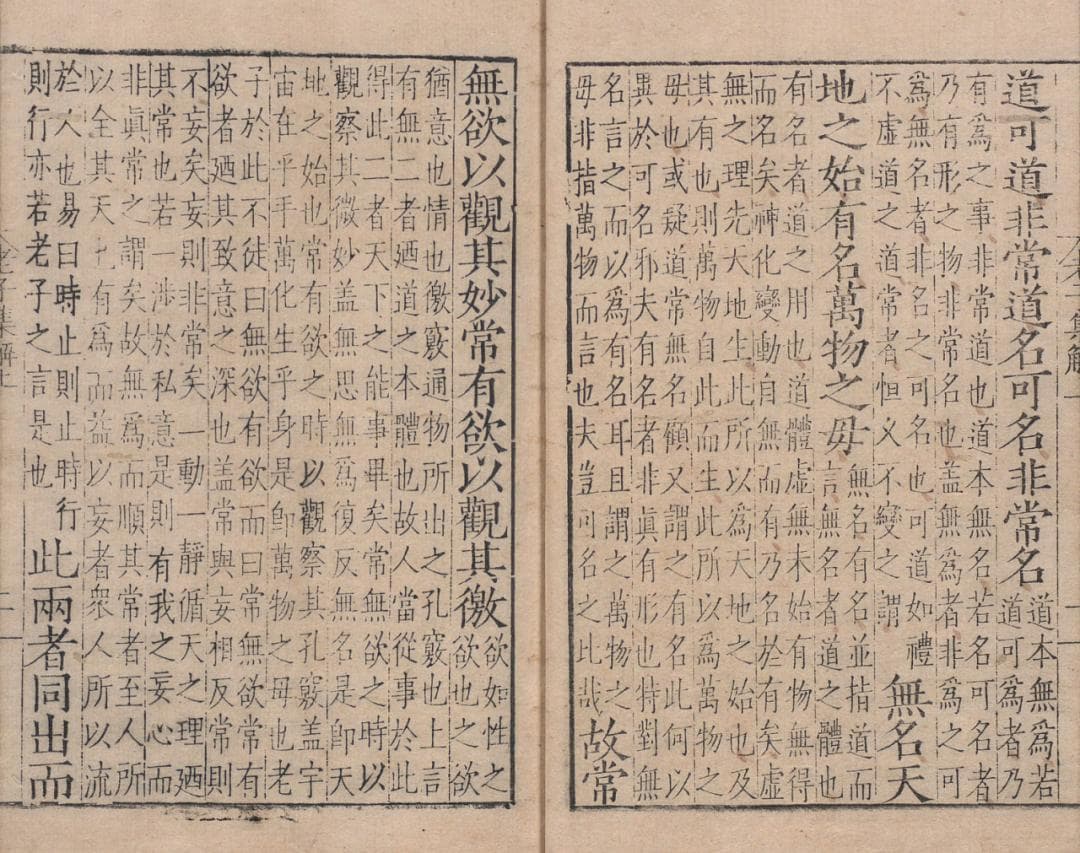 道可道非常道名可名非常名道本無爲若
道可爲者乃
有爲之事非常道也道本無名若名可名者
乃有形之物非常名也盖無爲者非爲之可
為無名者非名之可名也可道如禮
不虛道之道常者恒乂不變之謂
無名天
地之始有名萬物之毋
無名有名並指道而
言無名者道之體也
有名者道之用也道體虛無未始有物無得
而名矣神化變動自無而有乃名於有矣虛
無之理先天地生此所以為天地之始也及
其有也則萬物自此而生此所以爲萬物之
毋也或疑道常無名顧又謂之有名此何以
異於可名邪夫有名者非眞有形也特對無
名言之而以為有名耳且謂之萬物之
毋非指萬物而言也夫豈可名之比哉
故常
無欲以觀其妙常有欲以觀其徼
欲如性之
欲也之欲
猶意也情也徼竅通物所出之孔竅也上言
有無二者廼道之本體也故人當從事於此
得此二者天下之能事畢矣常無欲之時以
觀察其微妙盖無思無爲復反無名是卽天
地之始也常有欲之時以觀察其孔竅盖宇
宙在乎手萬化生乎身是卽萬物之母也老
子於此不徒曰無欲有欲而曰常無欲常有
欲者廼其致意之深也盖常與妄相反常則
不妄矣妄則非常矣一動一靜循天之理廼
其常也若一涉於私意是則有我之妄心而
非眞常之謂矣故無爲而順其常者至人所
以全其天也有爲而益以妄者衆人所以流
於人也易曰時止則止時行
則行亦若老子之言是也
此兩者同出而
老子集解上